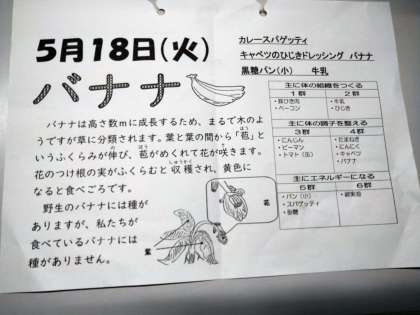 5月18日(火)
バナナ
カレースパゲッティ
キャベツのひじきドレッシング バナナ
黒糖パン(小) 牛乳
バナナは高さ数mに成長するため、まるで木のよ
うですが草に分類されます。葉と葉の間から「苞」と
いうふくらみが伸び、苞がめくれて花が咲きます。
花のつけ根の実がふくらむと収穫され、黄色に
なると食べごろです。
野生のバナナには種が
ありますが、私たちが
食べているバナナには
種がありません。
花
主に体の組織をつくる
1群 2群
・豚ひき肉 ・牛乳
・ベーコン ・ひじき
主に体の調子を整える
3群 4群
・にんじん ・たまねぎ
・ピーマン ・にんにく
・トマト(缶) ・キャベツ
・バナナ
主にエネルギーになる
5群 6群
・パン(小)
・スパゲッティ